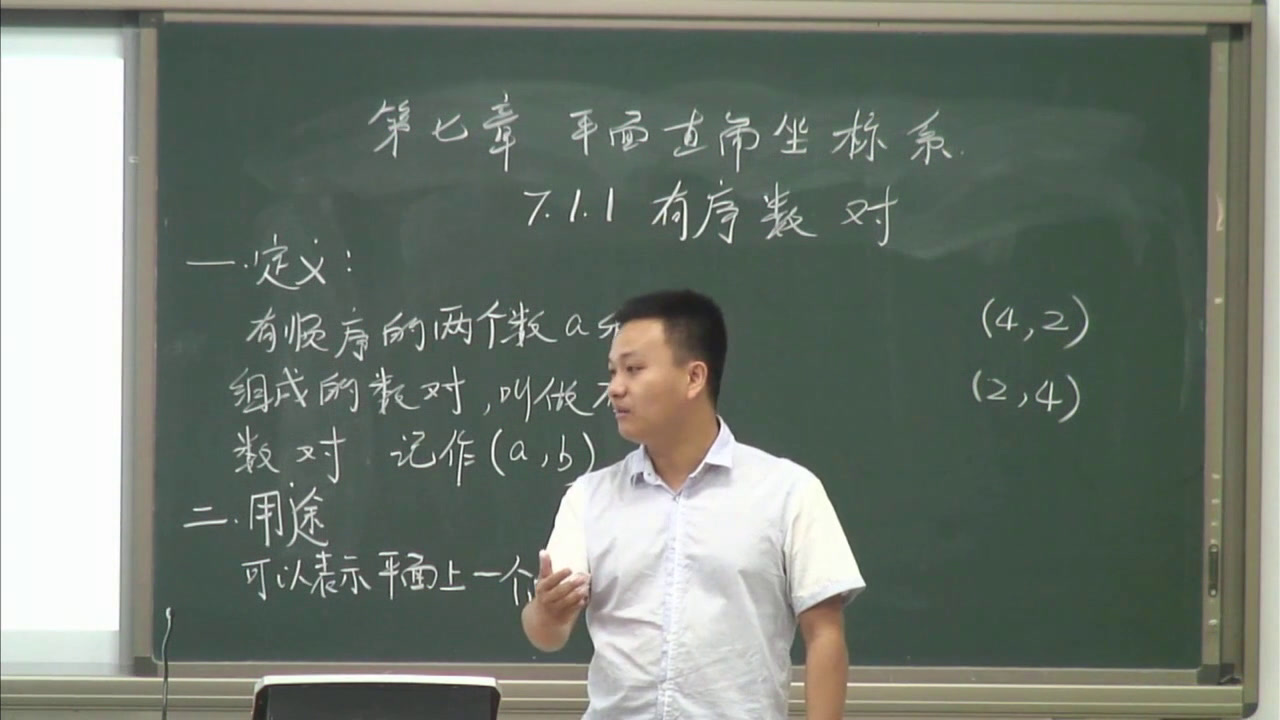 第七章 平面直角坐标系
7.1.1 有序数对
一.定义:
有顺序的两个数a
(4,2)
组成的数对,叫做
(2,4)
数对 记作(a,b)
二.用途
可以表示平面上一个